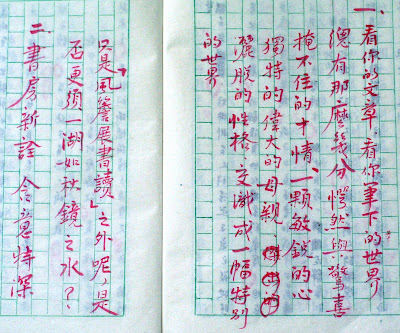 一、看你的文章,看你筆下的世界
總有那麼幾分愕然與驚喜
掩不住的才情、一顆敏銳的心
獨特的偉大的母親、
灑脫的性格、交織成一幅特別
的世界
只是「風簷展書讀」之外呢,是
否更須一湖如秋鏡之水?
二、書房新詮 含意特深